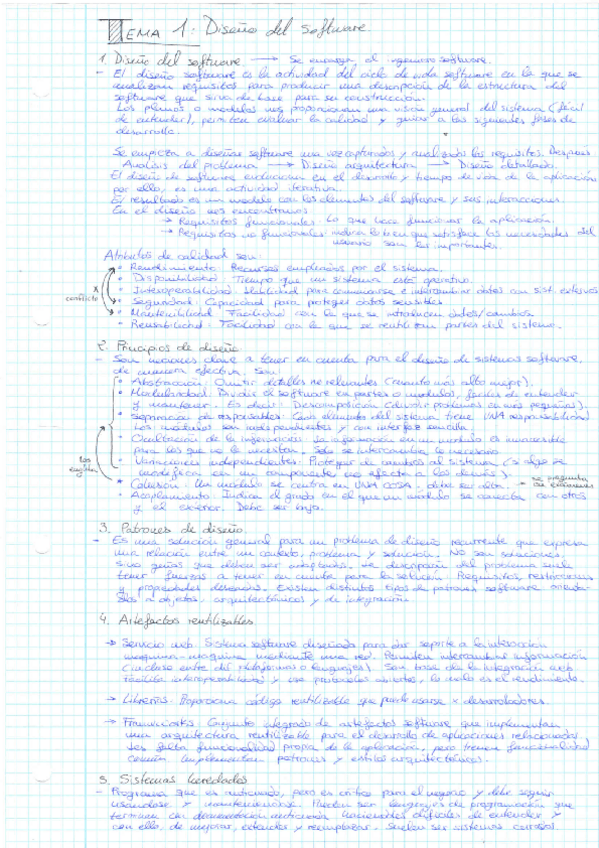 TEMA 1: Diseño del software.
1. Diseño del software. → Se encarga el ingeniero software.
- El diseño software es la actividad del ciclo de vida software en la que se
analizan requisitos para producir una descripción de la estructura del
software que sirva de base para su construcción.
Los planos o módulos nos proporcionan una visión general del sistema (fácil
de entender), permiten evaluar la calidad y guiar a las siguientes fases de
desarrollo.
Se empieza a diseñar software una vez capturados y analizados los requisitos. Después
Análisis del problema → Diseño arquitectura → Diseño detallado.
El diseño de software evoluciona en el desarrollo y tiempo de vida de la aplicación
por ello, es una actividad iterativa.
El resultado es un modelo con los elementos del software y sus interacciones.
En el diseño nos encontramos
→ Requisitos funcionales: Lo que hace funcionar la aplicación.
→ Requisitos no funcionales: indica lo bien que satisface las necesidades del
usuario son los importantes.
Atributos de calidad son:
• Rendimiento: Recursos empleados por el sistema.
• Disponibilidad: Tiempo que un sistema está operativo.
• Interoperabilidad: Habilidad para comunicarse e intercambiar datos con sist. externos
x conflicto
• Seguridad: Capacidad para proteger datos sensibles
• Mantenibilidad: Facilidad con la que se introducen datos/cambios
• Reusabilidad: Facilidad con la que se reutilizan partes del sistema.
2. Principios de diseño
- Son nociones clave a tener en cuenta para el diseño de sistemas software,
de manera efectiva. Son:
• Abstracción: Omitir detalles no relevantes (cuanto más alto mejor).
• Modularidad: Dividir el software en partes o módulos, fáciles de entender
y mantener. Es decir: Descomposición (dividir problemas en más pequeños).
• Separación de aspectos: Cada elemento del sistema tiene UNA responsabilidad
Los módulos son independientes y con interfaz sencilla.
• Ocultación de la información: La información en un módulo es inaccesible
para los que no la necesitan. Sólo se intercambia lo necesario
• Variaciones independientes: Proteger de cambios al sistema (si algo se
modifica en un componente no afecta a los demás).
• Cohesión: Un módulo se centra en UNA COSA. debe ser alta. → se pregunta en exámenes
• Acoplamiento: Indica el grado en el que un módulo se conecta con otros
y el exterior. Debe ser bajo.
3. Patrones de diseño.
- Es una solución general para un problema de diseño recurrente que expresa
una relación entre un contexto, problema y solución. No son soluciones,
sino guías que deben ser adaptadas. La descripción del problema suele
tener fuerzas a tener en cuenta para la solución. Requisitos, restricciones
y propiedades deseables. Existen distintos tipos de patrones software orienta-
dos a objetos: arquitectónicos y de integración.
4. Artefactos reutilizables
→ Servicio web: Sistema software diseñado para dar soporte a la interacción
maquina-maquina mediante una red. Permiten intercambiar información
(incluso entre dif. plataformas o lenguajes). Son base de la integración web
Facilita interoperabilidad y usa protocolos abiertos, lo malo es el rendimiento.
→ Librerías: Proporciona código reutilizable que puede usarse x desarrolladores.
→ Frameworks: Conjunto integrado de artefactos software que implementan
una arquitectura reutilizable para el desarrollo de aplicaciones relacionadas.
Les falta funcionalidad propia de la aplicación, pero tienen funcionalidad
común. Implementan patrones y estilos arquitectónicos.
5. Sistemas heredados
- Programa que es anticuado, pero es crítico para el negocio y debe seguir
usándose y manteniéndose. Pueden ser lenguajes de programación que
terminan con documentación anticuada haciéndolos difíciles de entender y
con ello, de mejorar, extender y reemplazar. Suelen ser sistemas